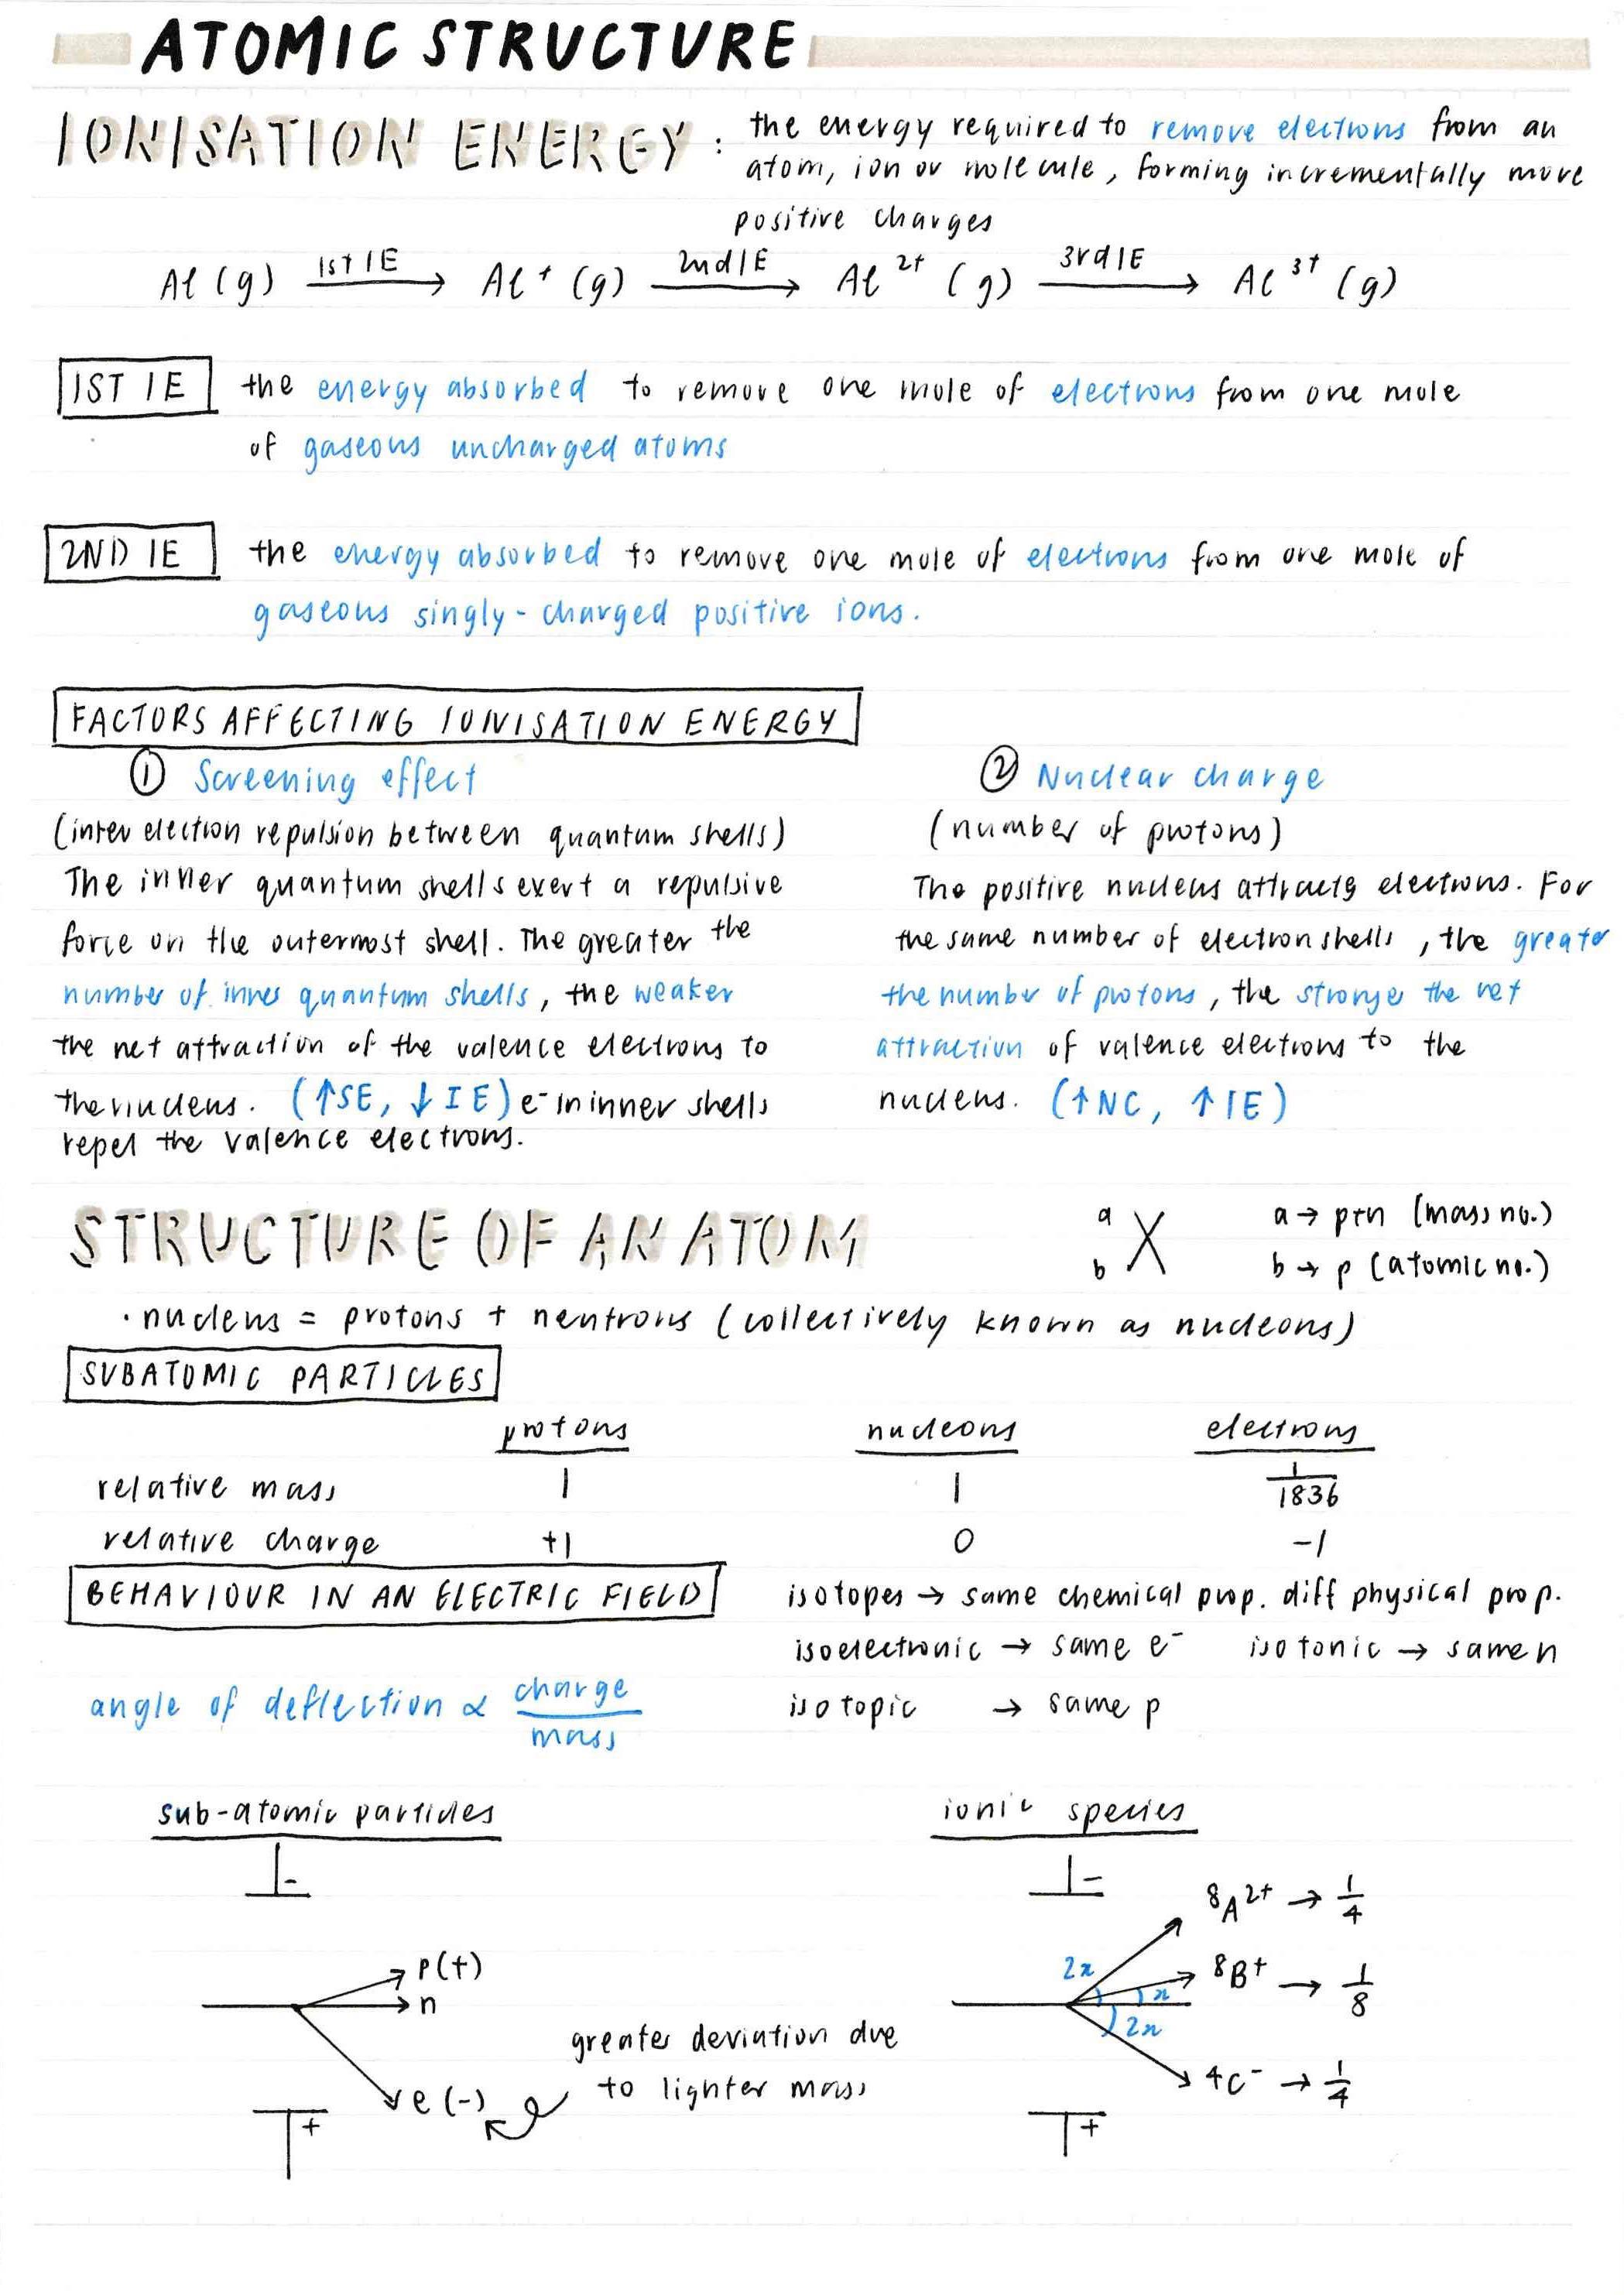 ATOMIC STRUCTURE
IONISATION ENERGY : the energy required to remove electrons from an
atom, ion or molecule, forming incrementally more
positive charges
Al (g) 1st IE → Al⁺ (g) 2nd IE → Al²⁺ (g) 3rd IE → Al³⁺ (g)
1ST IE the energy absorbed to remove one mole of electrons from one mole
of gaseous uncharged atoms
2ND IE the energy absorbed to remove one mole of electrons from one mole of
gaseous singly-charged positive ions.
FACTORS AFFECTING IONISATION ENERGY
① Screening effect
(inter electron repulsion between quantum shells)
The inner quantum shells exert a repulsive
force on the outermost shell. The greater the
number of inner quantum shells, the weaker
the net attraction of the valence electrons to
the nucleus. (↑SE, ↓IE) e⁻ in inner shells
repel the valence electrons.
② Nuclear charge
(number of protons)
The positive nucleus attracts electrons. For
the same number of electron shells, the greater
the number of protons, the stronger the net
attraction of valence electrons to the
nucleus. (↑NC, ↑IE)
STRUCTURE OF AN ATOM
a
b X
a → p+n (mass no.)
b → p (atomic no.)
· nucleus = protons + neutrons (collectively known as nucleons)
SUBATOMIC PARTICLES
protons nucleons electrons
relative mass 1 1 1/1836
relative charge +1 0 -1
BEHAVIOUR IN AN ELECTRIC FIELD
angle of deflection ∝ charge/mass
isotopes → same chemical prop. diff physical prop.
isoelectronic → same e⁻ isotonic → same n
isotopic → same p
sub-atomic particles
-
p(+)
n
e(-)
+
greater deviation due
to lighter mass
ionic species
-
⁸A²⁺ → 1/4
2x
⁸B⁺ → 1/8
x
2x
⁴C⁻ → 1/4
+